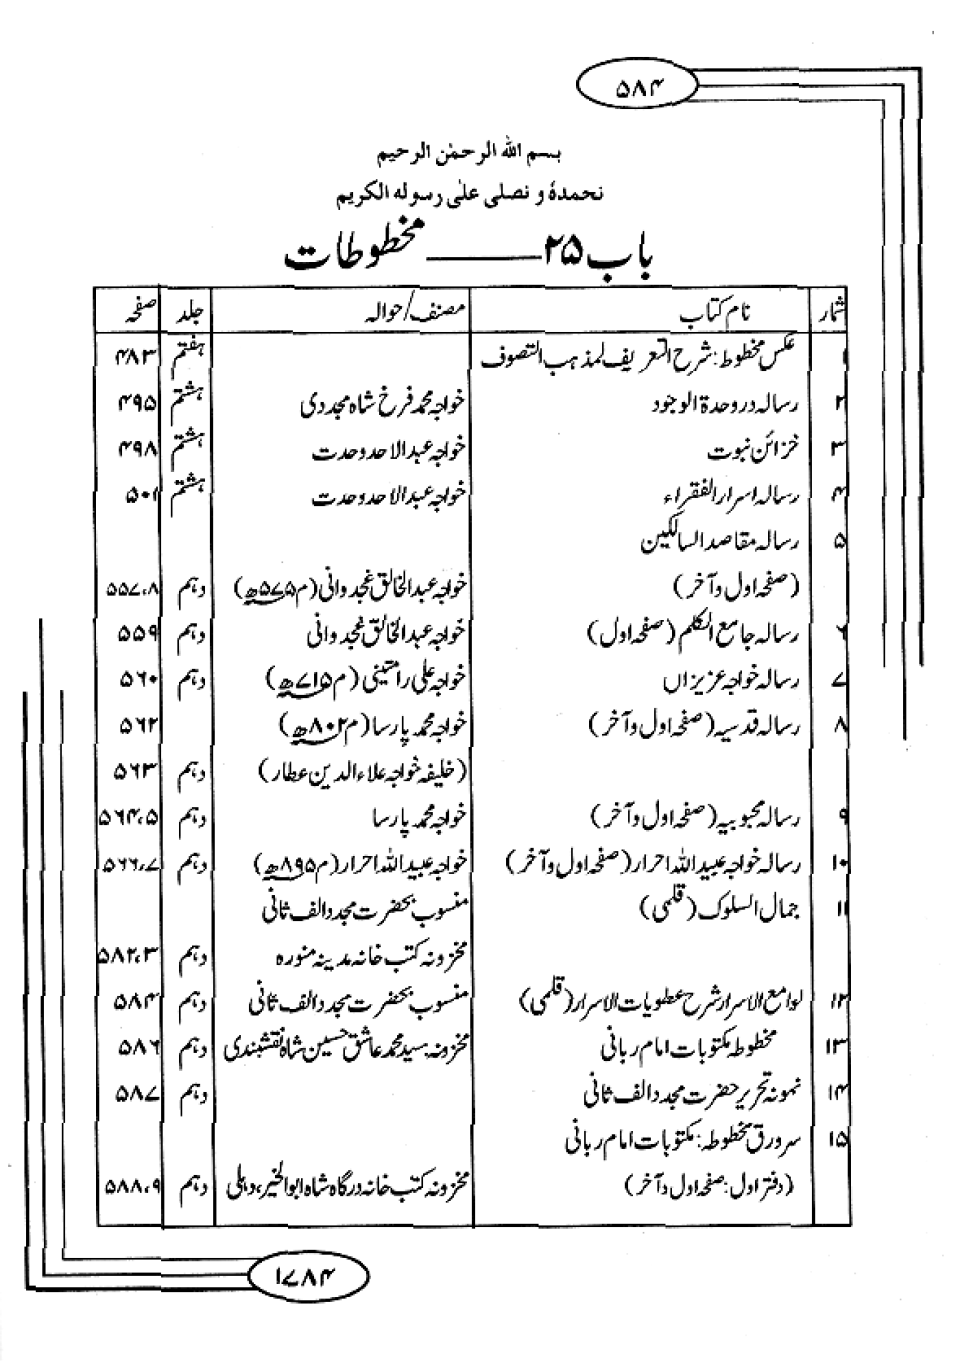 ۵۸۴
بسم الله الرحمٰن الرحیم
نحمدهٔ و نصلی علیٰ رسوله الکریم
باب ۲۵ ــــــ مخطوطات
شمار نام کتاب مصنف/حوالہ جلد صفحہ
۱ عکس مخطوط: شرح التعریف لمذہب التصوف ہفتم ۴۸۳
۲ رسالہ در وحدۃ الوجود خواجہ محمد فرخ شاہ مجددی ہشتم ۴۹۵
۳ خزائن نبوت خواجہ عبدالاحد وحدت ہشتم ۴۹۸
۴ رسالہ اسرار الفقراء خواجہ عبدالاحد وحدت ہشتم ۵۰۱
۵ رسالہ مقاصد السالکین
(صفحہ اول و آخر) خواجہ عبدالخالق غجدوانی (م ۵۷۵ھ) دہم ۵۵۷،۸
۶ رسالہ جامع الکلم (صفحہ اول) خواجہ عبدالخالق غجدوانی دہم ۵۵۹
۷ رسالہ خواجہ عزیزاں خواجہ علی رامتینی (م ۷۱۵ھ) دہم ۵۶۰
۸ رسالہ قدسیہ (صفحہ اول و آخر) خواجہ محمد پارسا (م ۸۰۲ھ) ۵۶۲
(خلیفہ خواجہ علاء الدین عطار) دہم ۵۶۳
۹ رسالہ محبوبیہ (صفحہ اول و آخر) خواجہ محمد پارسا دہم ۵۶۴،۵
۱۰ رسالہ خواجہ عبید اللہ احرار (صفحہ اول و آخر) خواجہ عبید اللہ احرار (م ۸۹۵ھ) دہم ۵۶۶،۷
۱۱ جمال السلوک (قلمی) منسوب بحضرت مجدد الف ثانی
مخزونہ کتب خانہ مدینہ منورہ دہم ۵۸۲،۳
۱۲ لوامع الاسرار شرح عطویات الاسرار (قلمی) منسوب بحضرت مجدد الف ثانی دہم ۵۸۴
۱۳ مخطوطہ مکتوبات امام ربانی مخزونہ سید محمد عاشق حسین شاہ نقشبندی دہم ۵۸۶
۱۴ نمونہ تحریر حضرت مجدد الف ثانی دہم ۵۸۷
۱۵ سرورق مخطوطہ: مکتوبات امام ربانی
(دفتر اول: صفحہ اول و آخر) مخزونہ کتب خانہ درگاہ شاہ ابوالخیر، دہلی دہم ۵۸۸،۹
۱۷۸۴